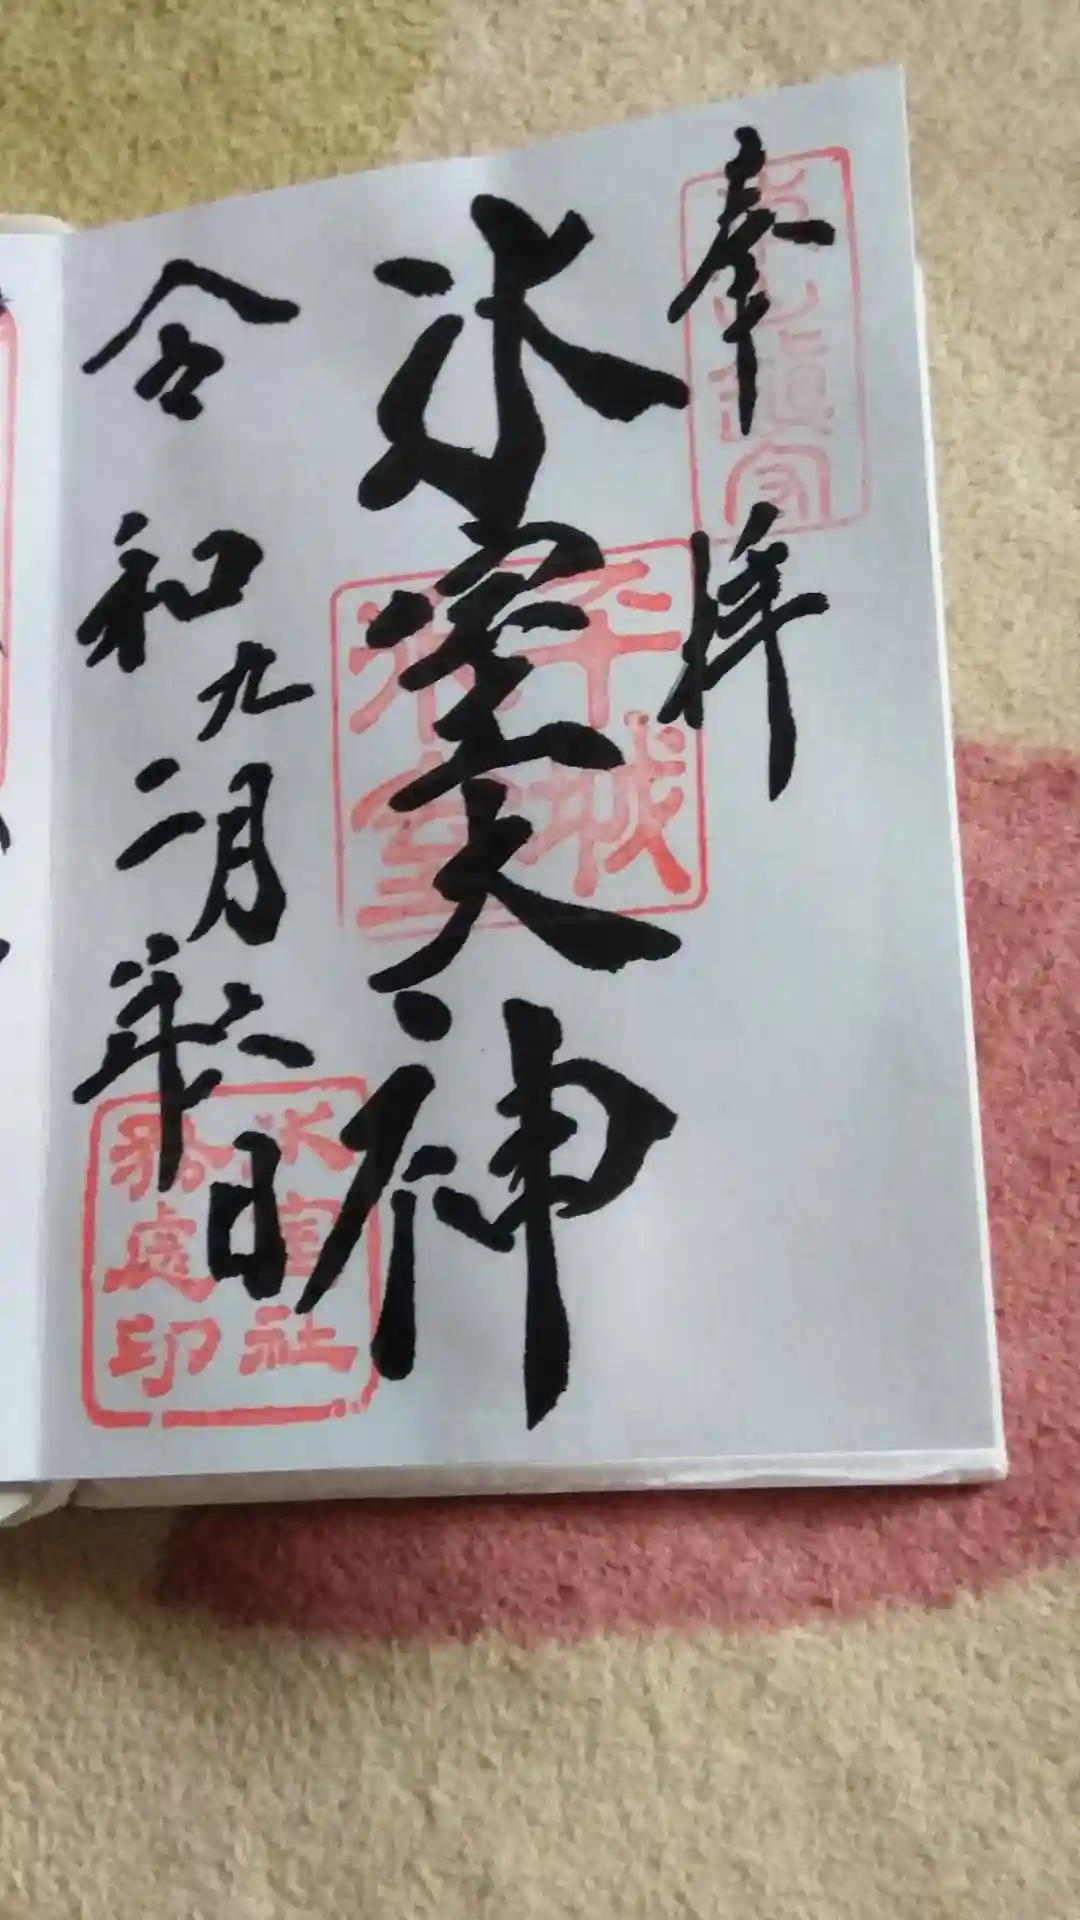 鎮守
奉拝
氷室大神
平城
氷室
九月六日
令和二年
氷室社
務處印